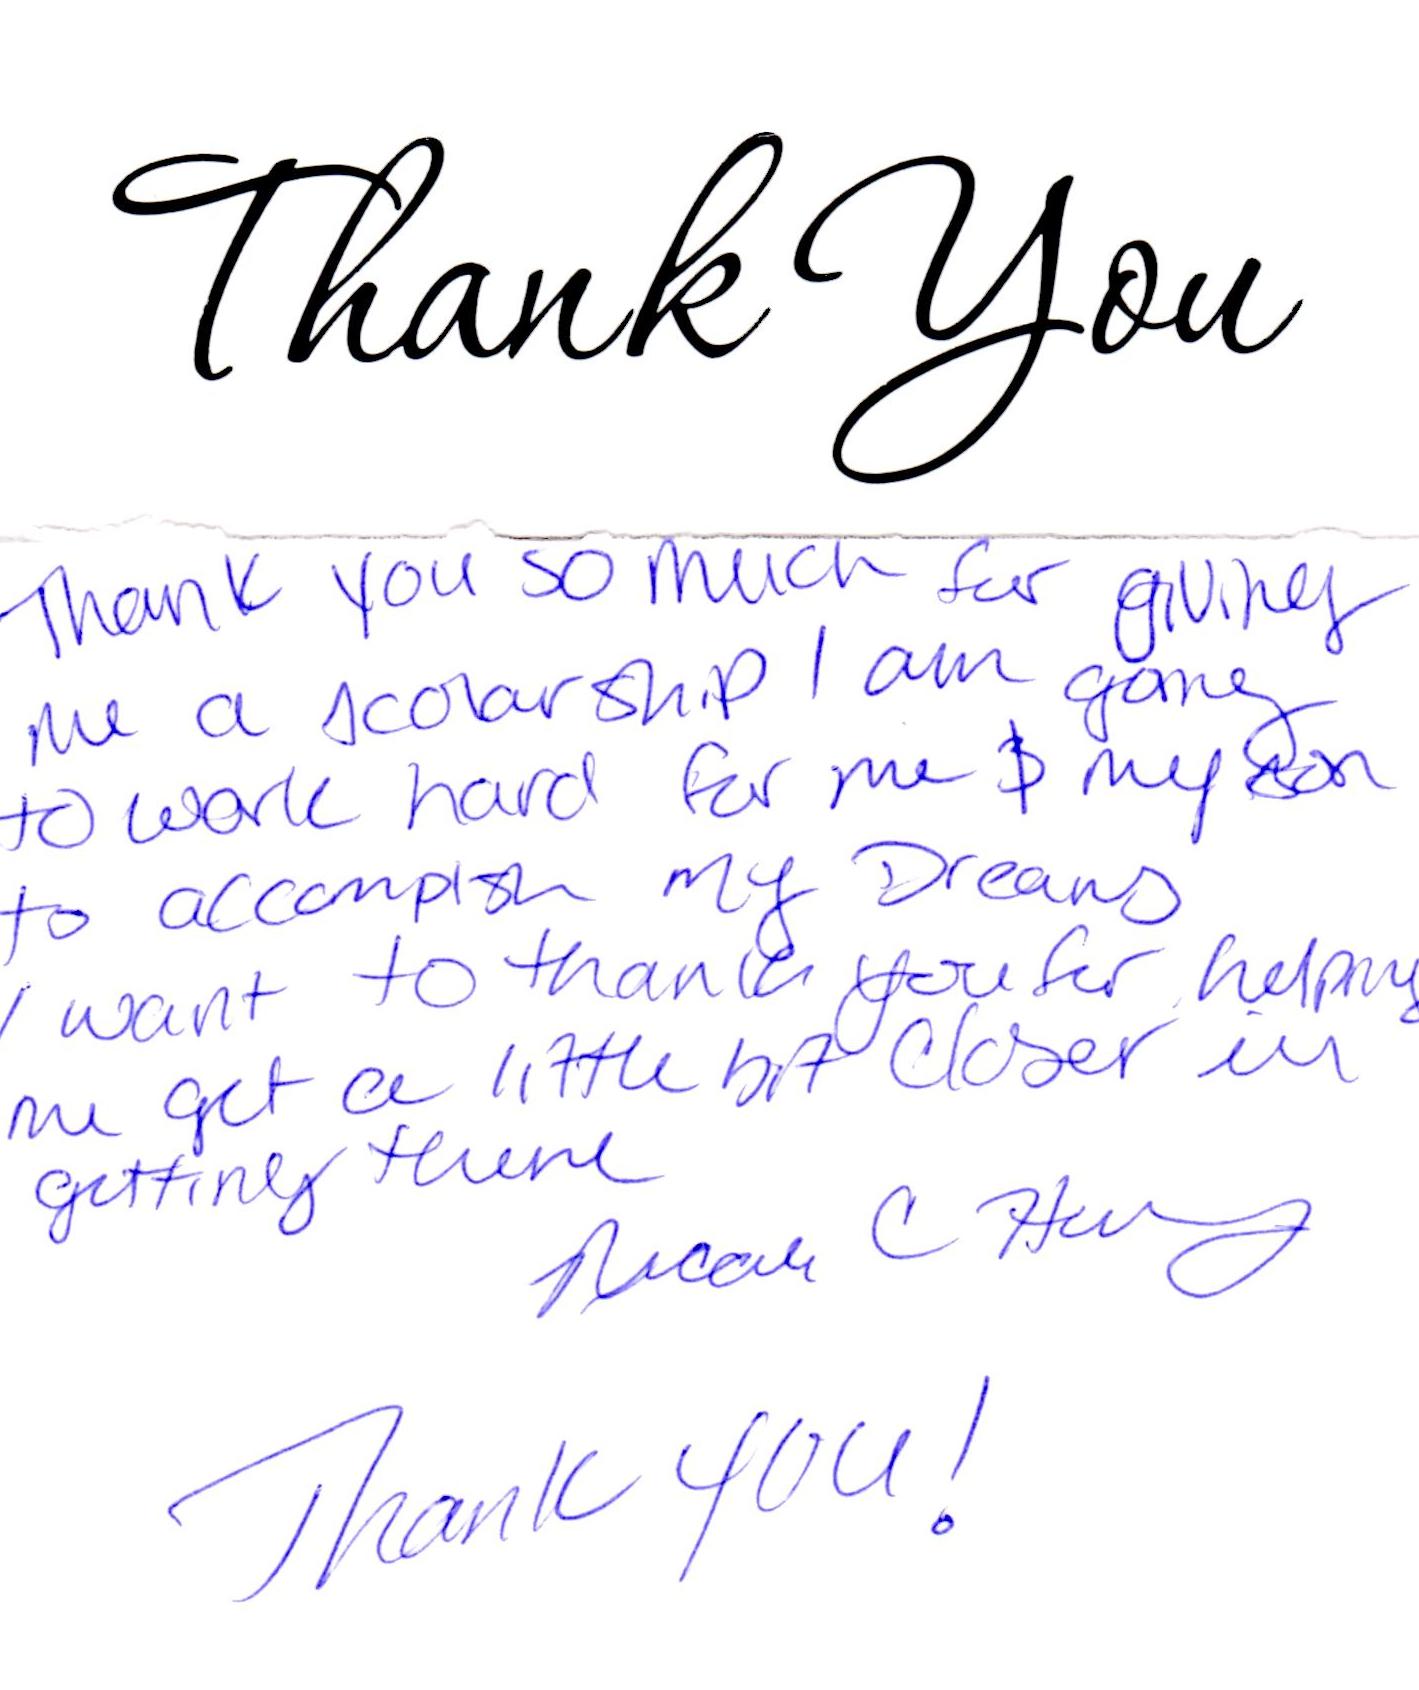 Thank You
Thank you so much for giving
me a scolarship I am going
to work hard for me & my son
to accomplish my Dreams
I want to thank you for helping
me get a little bit closer in
getting there
C
Thank you!